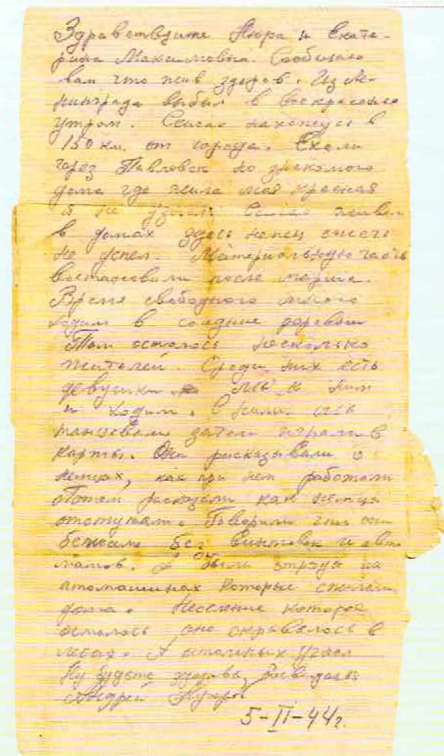 Здравствуйте Нюра и Екате-
рина Максимовна. Сообщаю
вам что жив здоров. Из Ле-
нинграда выбыл в воскресенье
утром. Сейчас нахожусь в
150 км. от города. Ехали
через Павловск но знакомого
дома где жила моя красная
я не узнал. Сейчас живем
в домах здесь немец сжечь
не успел. Материальную часть
восстановили после марша.
Время свободного много
ходим в соседние деревни
Там осталось несколько
жителей. Среди них есть
девушки. мы к ним
и ходим. С ними
танцевали затем играли в
карты. Они рассказывали о
немцах, как при нем работали
Потом рассказали как немцы
отступали. Говорили что они
бежали без винтовок и авто
матов. А были отряды на
автомашинах которые сжигали
дома. Население которое
осталось оно скрывалось в
лесах. А остальных угнал
Ну будьте здоровы. До свиданья
Андрей
5-II-44г.